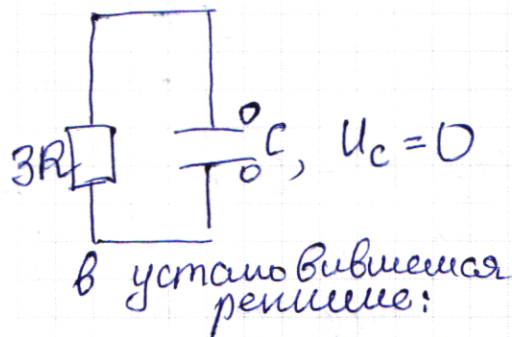 0
3R
C, U_C = 0
0
в установившемся
режиме: